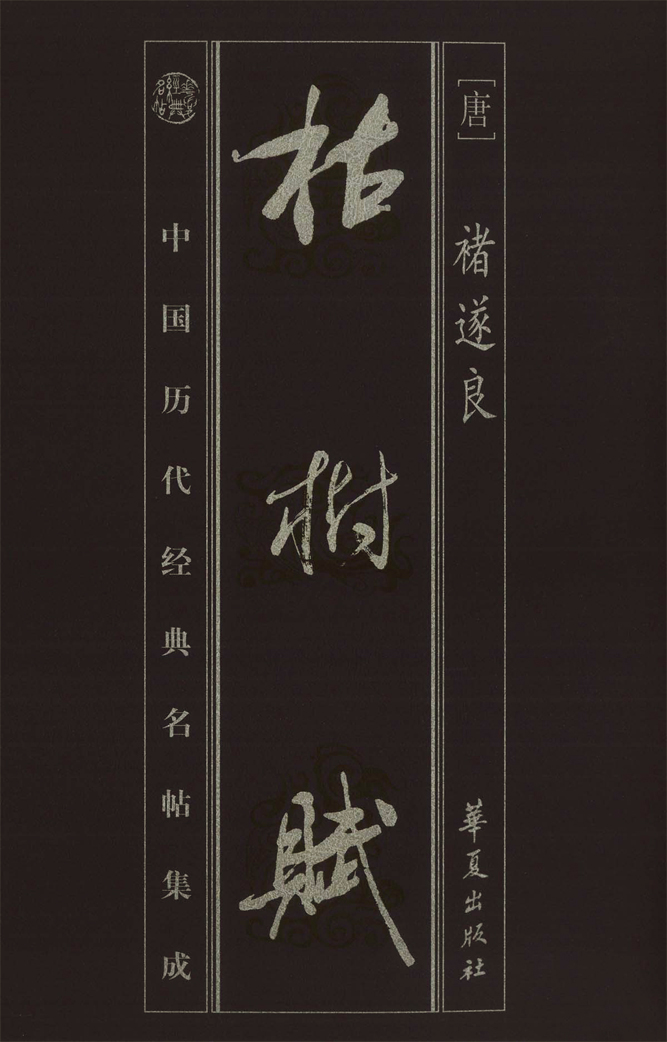 [唐]
褚遂良
華夏出版社
枯樹賦
經典
名帖
中国历代经典名帖集成